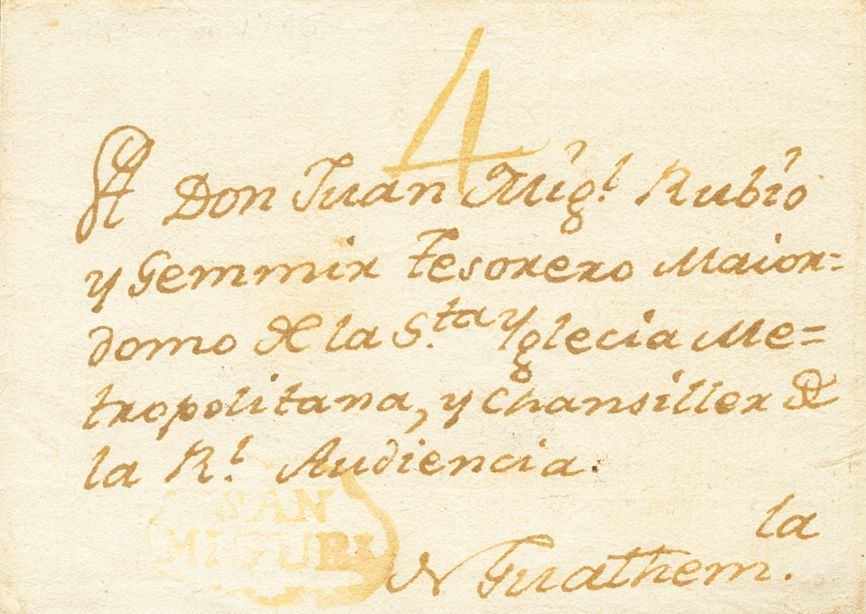 4
A Don Juan Mig.l Rubio
y Gemmir Tesorero Maior=
domo de la S.ta Yglecia Me=
tropolitana, y Chansiller de
la R.l Audiencia.
SAN
MIGUEL
Guathem.la